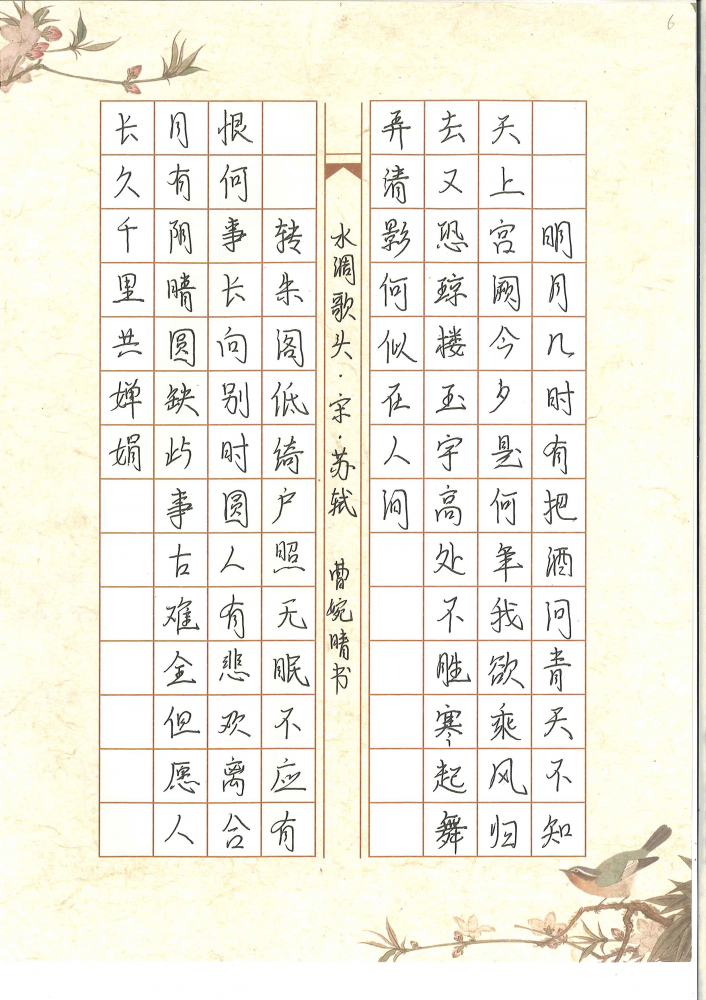 明月几时有把酒问青天不知
天上宫阙今夕是何年我欲乘风归
去又恐琼楼玉宇高处不胜寒起舞
弄清影何似在人间
水调歌头·宋·苏轼 曹婉晴书
转朱阁低绮户照无眠不应有
恨何事长向别时圆人有悲欢离合
月有阴晴圆缺此事古难全但愿人
长久千里共婵娟
6